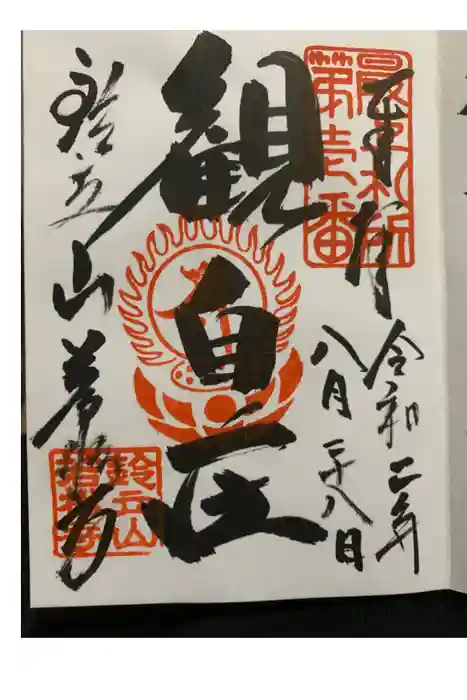 最上札所
第壱番
奉拝
令和二年
八月廿八日
観自在
鈴立山
若松寺
鈴立山
若松寺